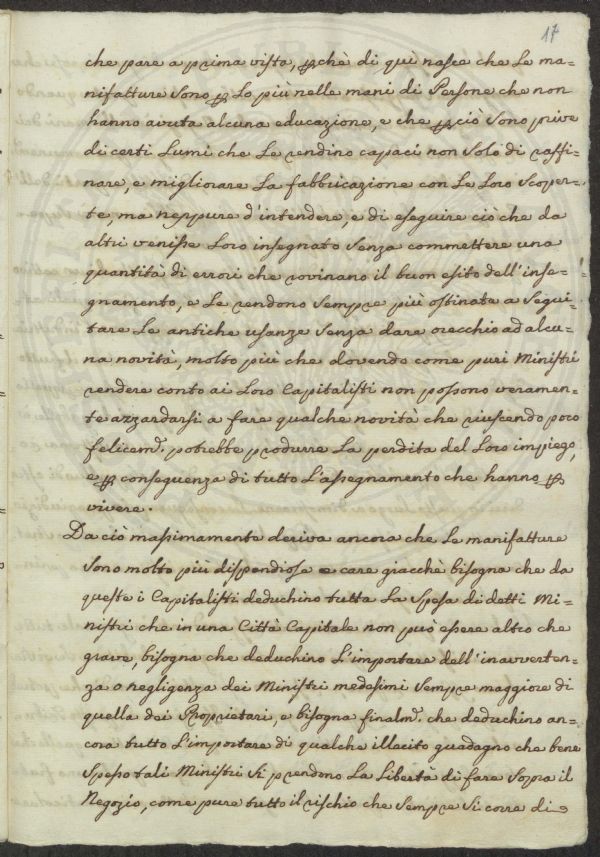 17
che pare a prima vista, pchè di quì nasce che Le ma=
nifatture sono p Lo più nelle mani di Persone che non
hanno avuta alcuna educazione, e che p ciò sono prive
di certi Lumi che Le rendino capaci non solo di raffi=
nare, e migliorare La fabbricazione con Le Loro scoper=
te, ma neppure d'intendere, e di eseguire ciò che da
altri venisse Loro insegnato senza commettere una
quantità di errori che rovinano il buon esito dell'inse=
gnamento, e Le rendono sempre più ostinate a segui=
tare Le antiche usanze senza dare orecchio ad alcu=
na novità, molto più che dovendo come puri Ministri
rendere conto ai Loro Capitalisti non possono veramen=
te azzardarsi a fare qualche novità che riuscendo poco
felicem.e potrebbe produrre La perdita del Loro impiego,
e p conseguenza di tutto L'assegnamento che hanno p
vivere.
Da ciò massimamente deriva ancora che Le manifatture
sono molto più dispendiose e care giacchè bisogna che da
queste i Capitalisti deduchino tutta La spesa di detti Mi=
nistri che in una Città Capitale non può essere altro che
grave, bisogna che deduchino L'importare dell'inavverten=
za o negligenza dei Ministri medesimi sempre maggiore di
quella dei Proprietari, e bisogna finalm.e che deduchino an=
cora tutto L'importare di qualche illecito guadagno che bene
spesso tali Ministri si prendono La Libertà di fare sopra il
Negozio, come pure tutto il rischio che sempre si corre di